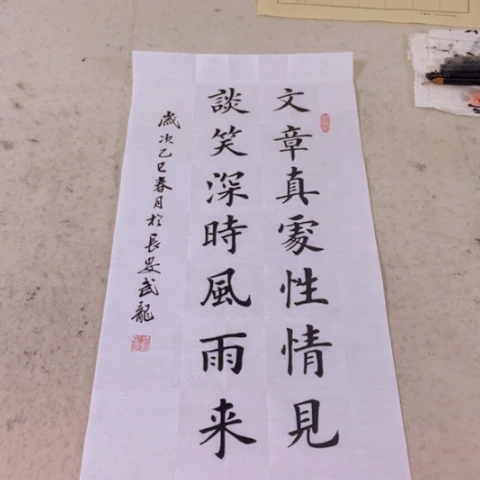 文章真處性情見
談笑深時風雨来
歲次乙巳春月於長安武龍